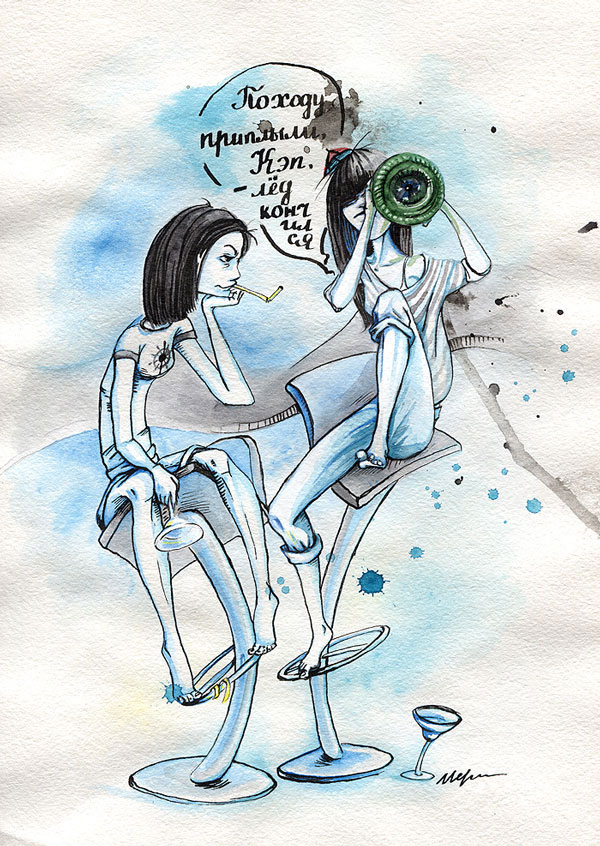 Походу
приплыли,
Кэп,
-лёд
конч
ил
ся